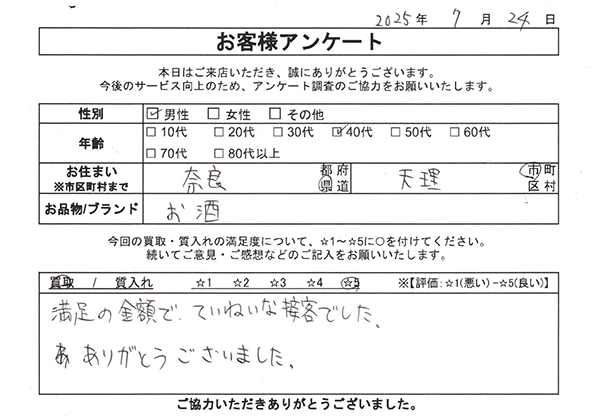 2025年 7月 24日
お客様アンケート
本日はご来店いただき、誠にありがとうございます。
今後のサービス向上のため、アンケート調査のご協力をお願いいたします。
性別 ☑男性 □女性 □その他
年齢 □10代 □20代 □30代 ☑40代 □50代 □60代
□70代 □80代以上
お住まい ※市区町村まで 奈良 都府県道 天理 市町区村
お品物/ブランド お酒
今回の買取・質入れの満足度について、☆1～☆5に○を付けてください。
続いてご意見・ご感想などのご記入をお願いいたします。
買取 / 質入れ ☆1 ☆2 ☆3 ☆4 ☆5 ※【評価:☆1(悪い)-☆5(良い)】
満足の金額で、ていねいな接客でした。
ありがとうございました。
ご協力いただきありがとうございました。